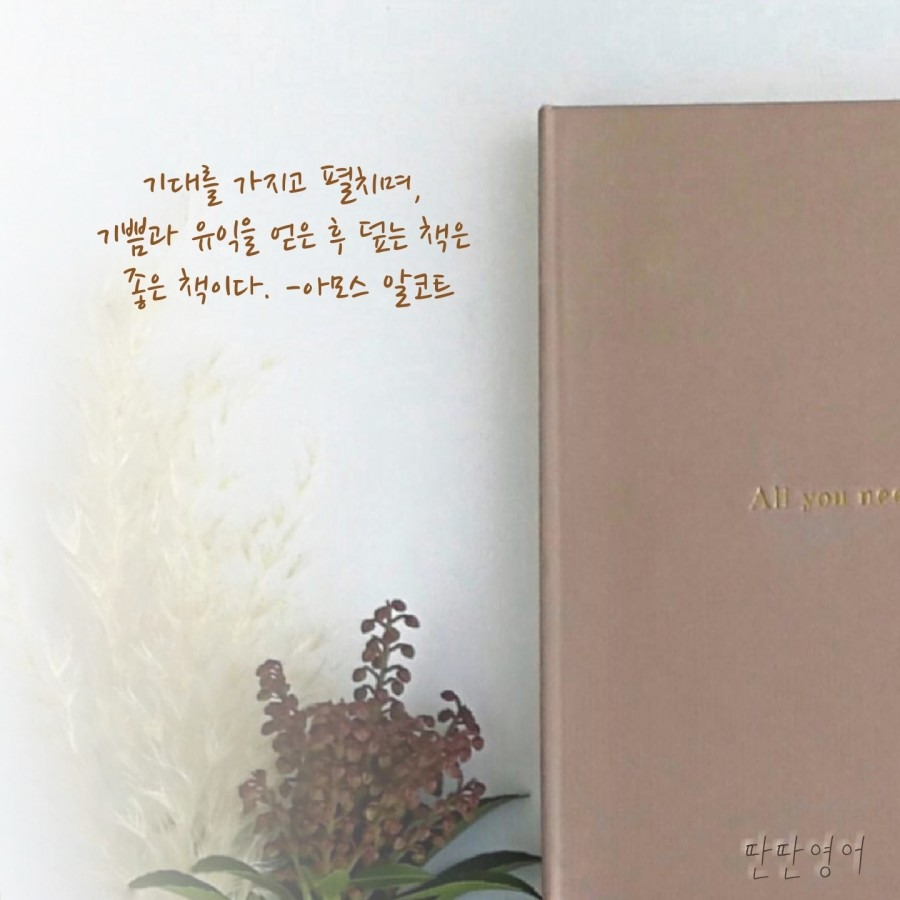 기대를 가지고 펼치며,
기쁨과 유익을 얻은 후 덮는 책은
좋은 책이다. -아모스 알코트
All you nee
딴딴영어